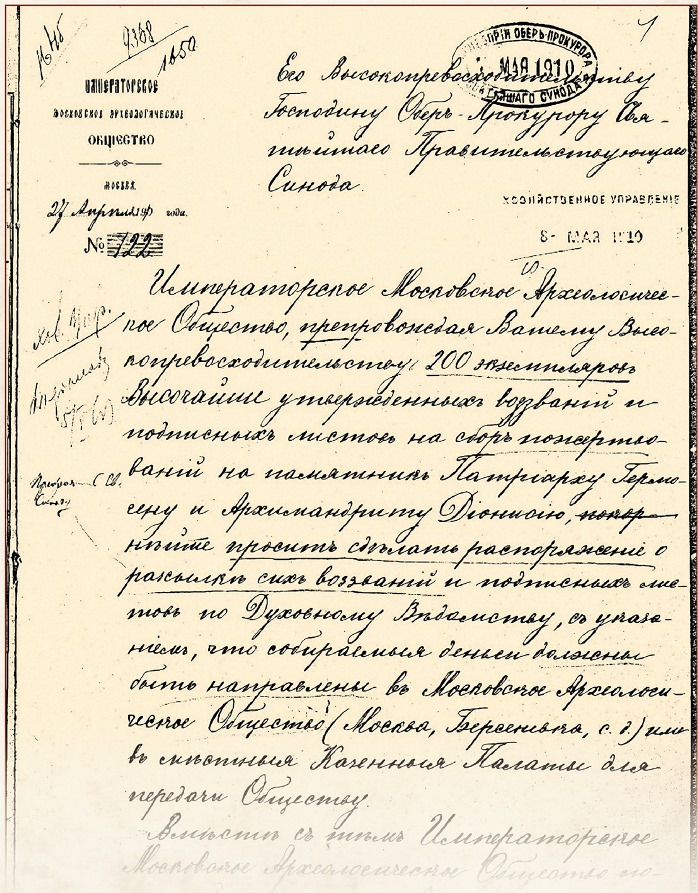 1
9368
1050
ИМПЕРАТОРСКОЕ
МОСКОВСКОЕ АРХЕОЛОГИЧЕСКОЕ
ОБЩЕСТВО
МОСКВА.
27 Апреля 1910 года.
№ 122
ОБЕРЪ-ПРОКУРОРА
МАЯ 1910
СУНОДА
Его Высокопревосходительству
Господину Оберъ-Прокурору Свя-
тѣйшаго Правительствующаго
Синода.
ХОЗЯЙСТВЕННОЕ УПРАВЛЕНІЕ
8- МАЯ 1910
Императорское Московское Археологичес-
кое Общество, препровождая Вашему Высо-
копревосходительству 200 экземпляровъ
Высочайше утвержденныхъ воззваній и
подписныхъ листовъ на сборъ пожертво-
ваній на памятникъ Патріарху Гермо-
гену и Архимандриту Діонисію, покор-
нѣйше проситъ сдѣлать распоряженіе о
разсылкѣ сихъ воззваній и подписныхъ лис-
товъ по Духовному Вѣдомству, съ указа-
ніемъ, что собираемыя деньги должны
быть направлены въ Московское Археологи-
ческое Общество (Москва, Берсеневка, с. д.) или
въ мѣстныя Казенныя Палаты для
передачи Обществу.
Вмѣстѣ съ тѣмъ Императорское
Московское Археологическое Общество по-